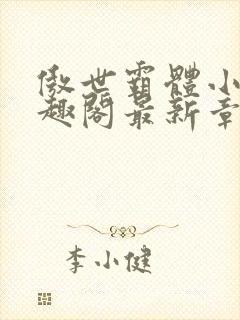 傲世霸體小
趣閣最新章
李小健